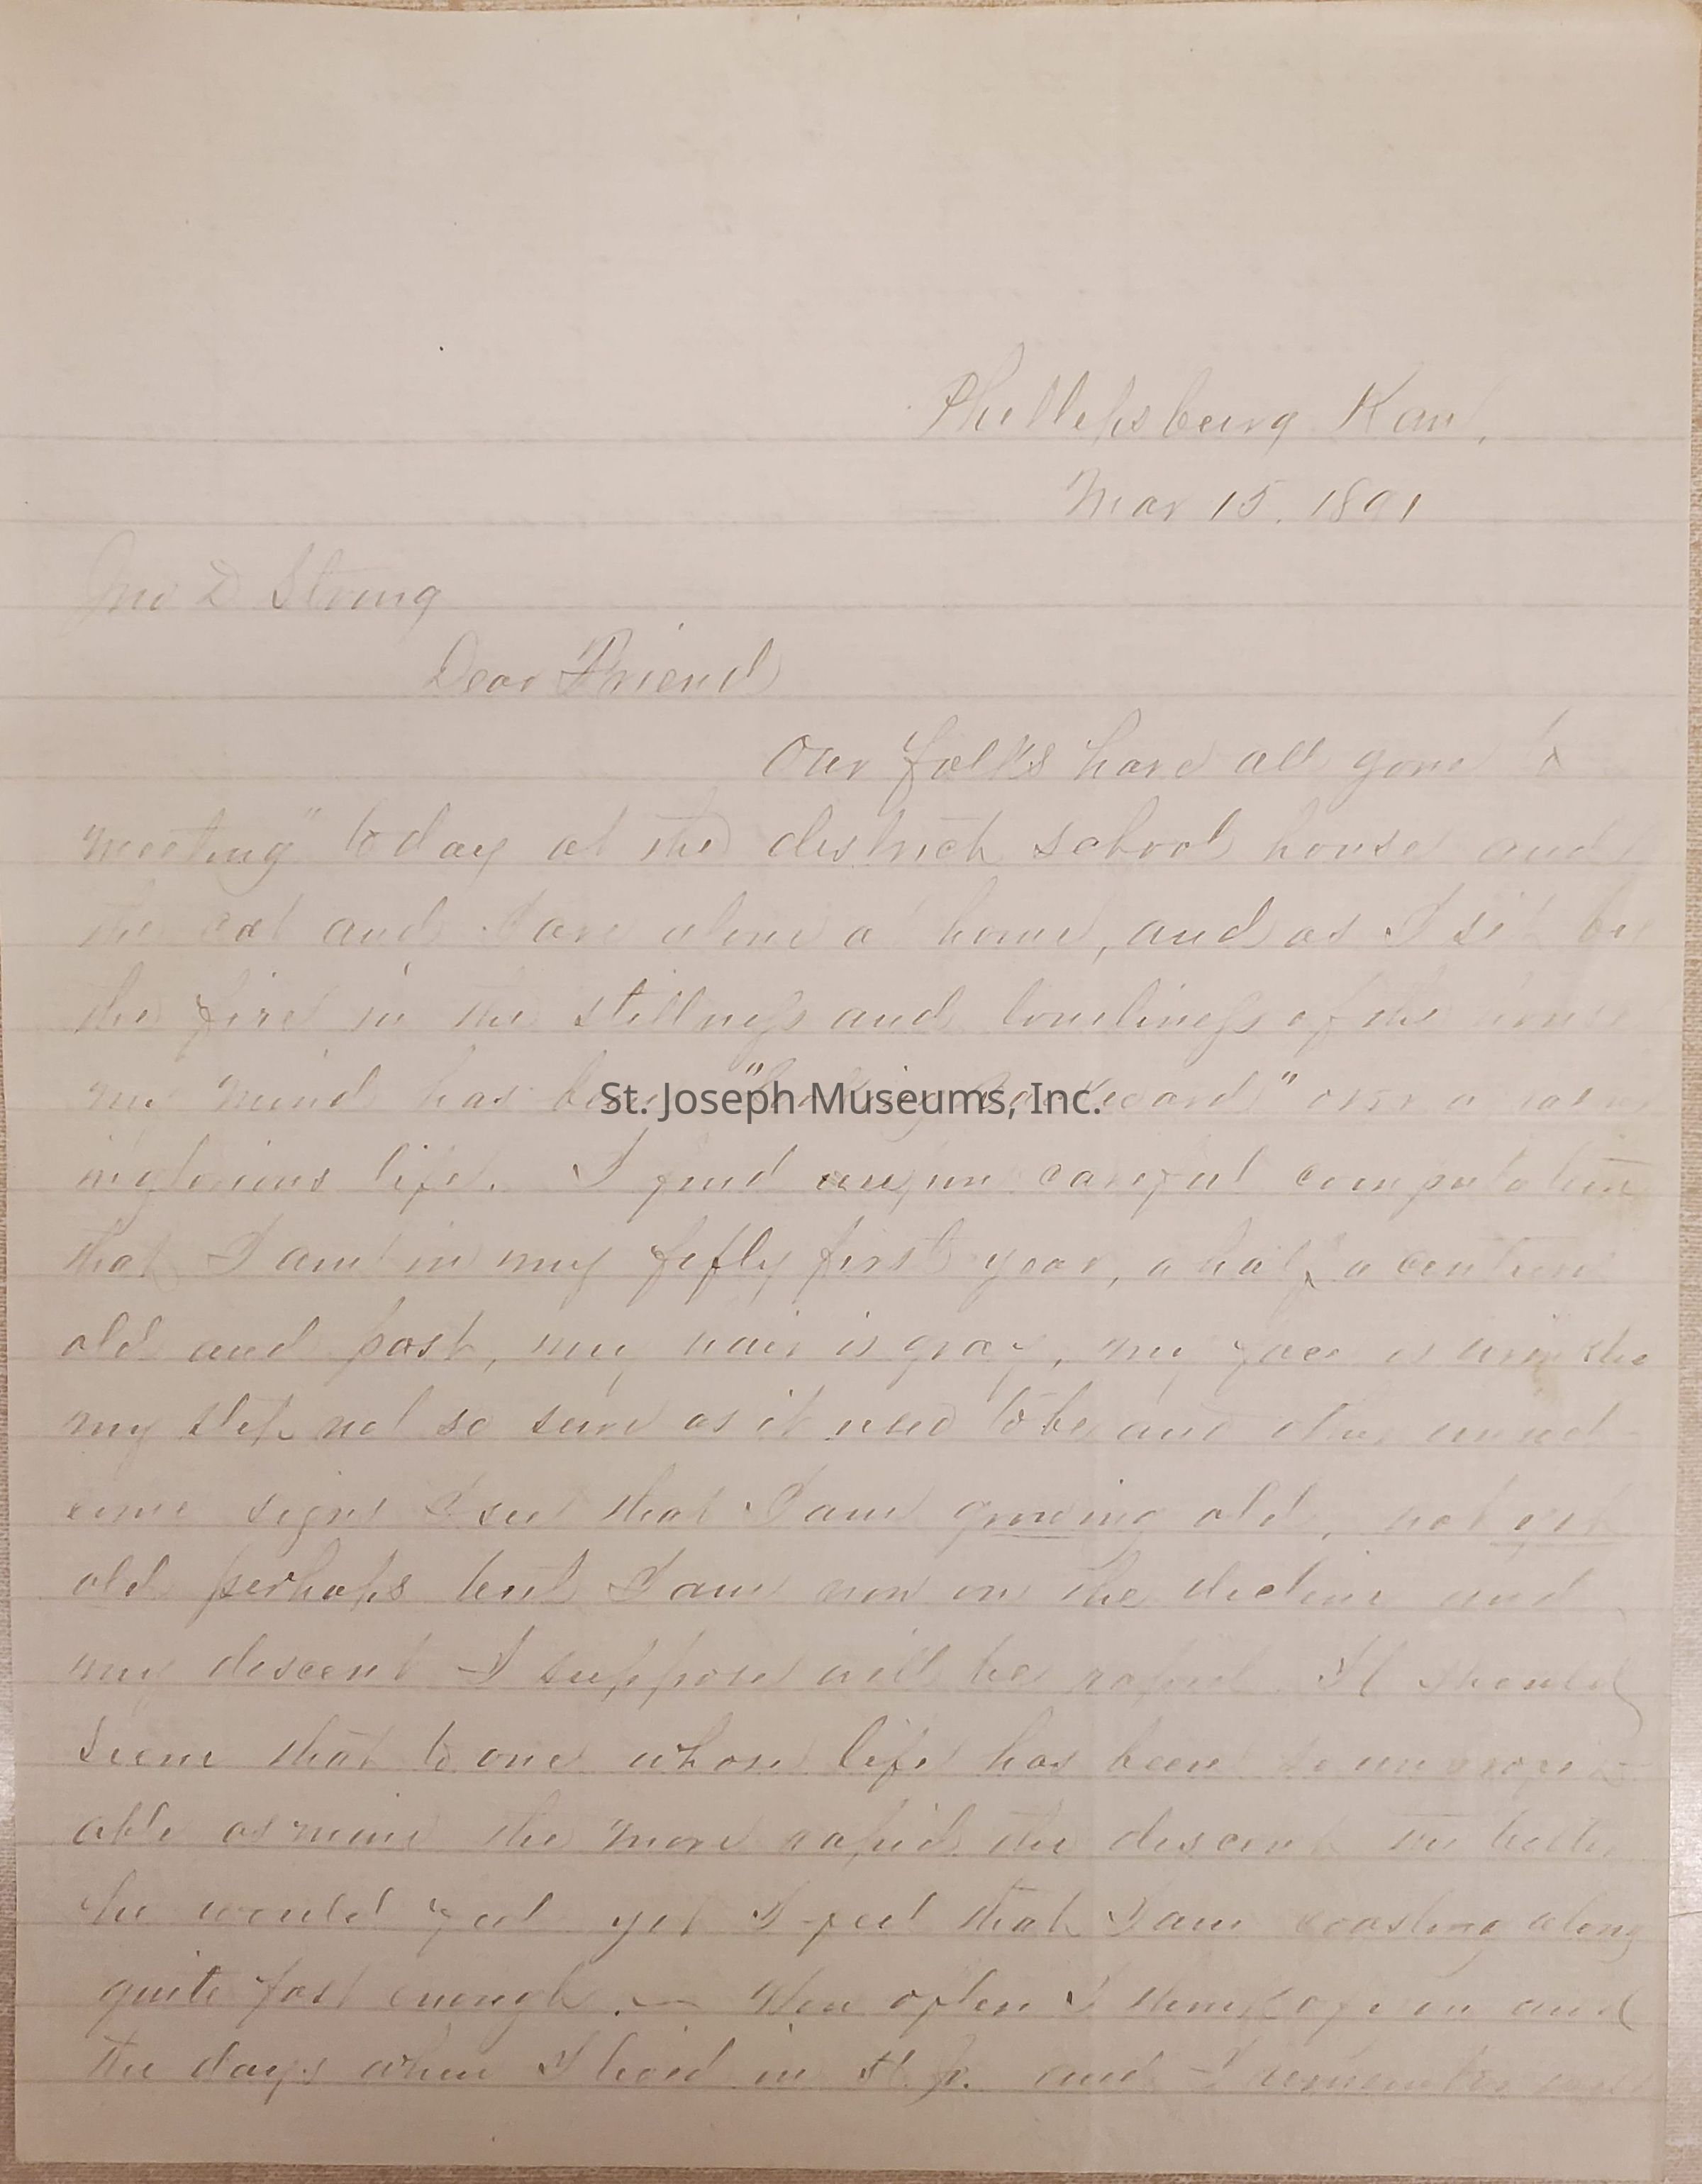 Phillipsburg Kan.
Mar 15. 1891
Jno D Strong
Dear Friend
Our folks have all gone to
meeting" today at the district school house and
the cat and I are alone at home, and as I sit by
the fire in the stillness and loneliness of the house
my mind has been "looking backward" over a rather
inglorious life. I find upon careful computation
that I am in my fifty first year, a half a century
old and past, my hair is gray, my face is wrinkled
my step not so sure as it used to be and other
signs I see that I am growing old, not yet
old perhaps but I am now on the decline and
my descent I suppose will be rapid. It should
seem that to one whose life has been so unprofit-
able as mine the more rapid the descent the better
he would feel yet I feel that I am coasting along
quite fast enough. — How often I think of you and
the days when I lived in St. Jo. and I remember well
St. Joseph Museums, Inc.